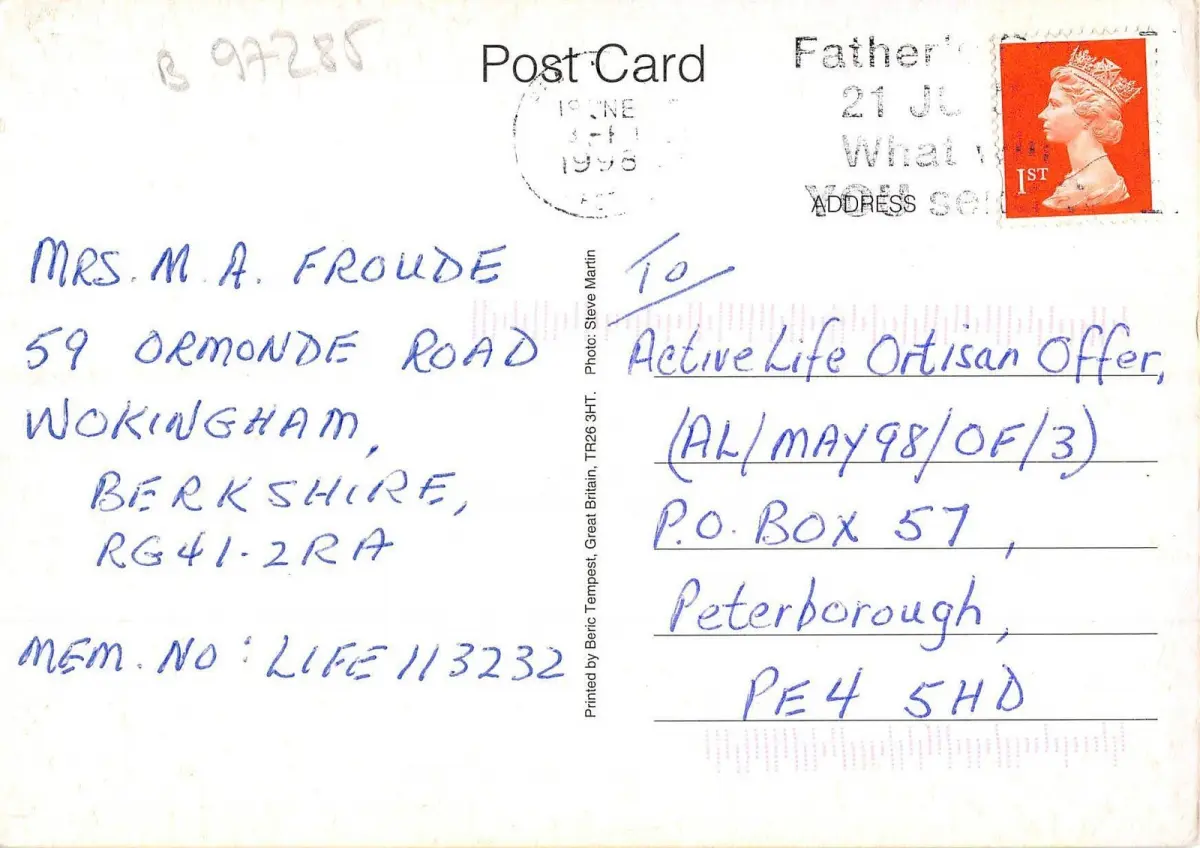 B 97285
Post Card
Father's
21 JU
What
YOU
1998
ADDRESS
1ST
MRS. M. A. FROUDE
59 ORMONDE ROAD
WOKINGHAM,
BERKSHIRE,
RG41-2RA
MEM. NO: LIFE 113232
Printed by Beric Tempest, Great Britain, TR26 3HT. Photo: Steve Martin
To
Active Life Ortisan Offer,
(AL/MAY98/OF/3)
P.O. BOX 57,
Peterborough,
PE4 5HD